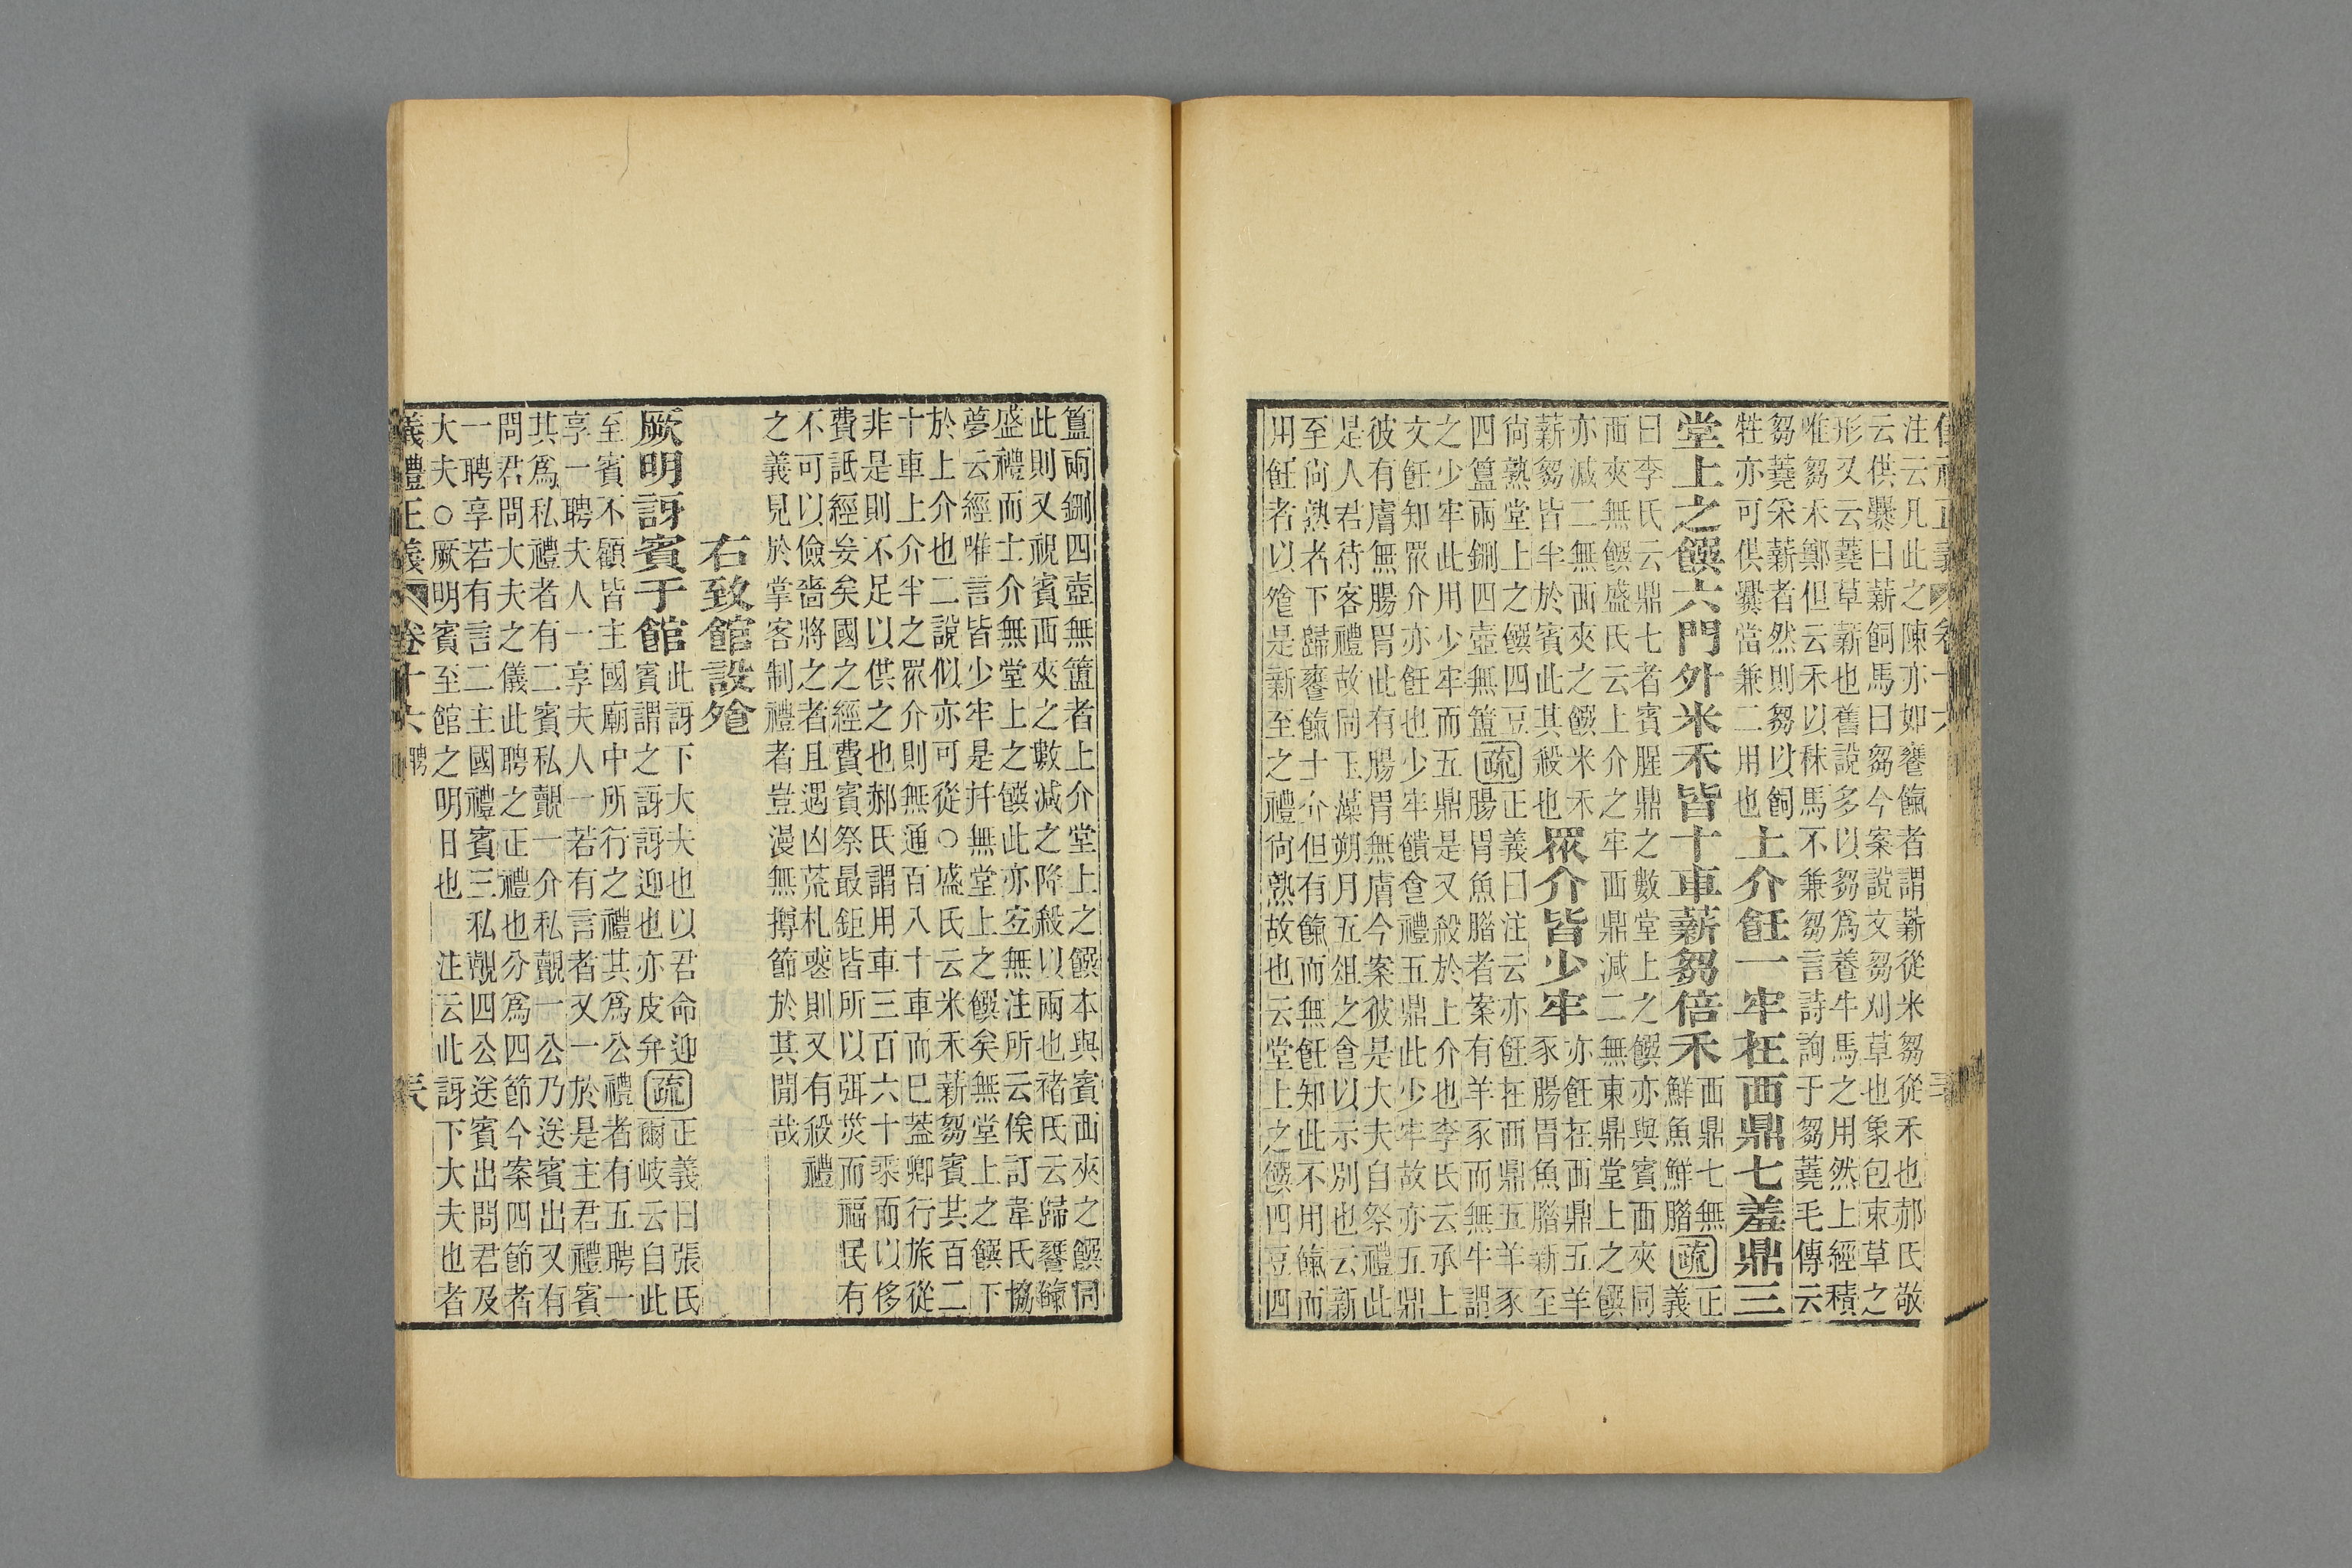 注云凡此之陳亦如饔餼者謂薪從米芻從禾也郝氏敬
云供爨曰薪飼馬曰芻今案說文芻刈草也象包束草之
形又云蕘草薪也舊說多以芻爲養牛馬之用然上經積
唯芻禾鄭但云禾以秣馬不兼芻言詩詢于芻蕘毛傳云
芻蕘采薪者然則芻以飼
牲亦可供爨當兼二用也
上介飪一牢在西鼎七羞鼎三
堂上之饌六門外米禾皆十車薪芻倍禾
西鼎七無
鮮魚鮮腊
疏正
義
曰李氏云鼎七者賓腥鼎之數堂上之饌亦與賓西夾同
西夾無饌盛氏云上介之牢西鼎減二無東鼎堂上之饌
亦減二無西夾之饌米禾
薪芻皆半於賓此其殺也
眾介皆少牢
亦飪在西鼎五羊
豕腸胃魚腊新至
尚熟堂上之饌四豆
四簋兩鉶四壺無簠
疏
正義曰注云亦飪在西鼎五羊豕
腸胃魚腊者案有羊豕而無牛謂
之少牢此用少牢而五鼎是又殺於上介也李氏云承上
文飪知眾介亦飪也少牢饋食禮五鼎此少牢故亦五鼎
彼有膚無腸胃此有腸胃無膚今案彼是大夫自祭禮此
是人君待客禮故同玉藻朔月五俎之食以示別也云新
至尚熟者下歸饔餼士介但有餼而無飪知此不用餼而
用飪者以飧是新至之禮尚熟故也云堂上之饌四豆四
簋兩鉶四壺無簠者上介堂上之饌本與賓西夾之饌同
此則又視賓西夾之數減之降殺以兩也褚氏云歸饔餼
盛禮而士介無堂上之饌此亦宜無注所云俟訂韋氏協
夢云經唯言皆少牢是并無堂上之饌矣無堂上之饌下
於上介也二說似亦可從○盛氏云米禾薪芻賓其百二
十車上介半之眾介則無通百八十車而已蓋卿行旅從
非是則不足以供之也郝氏謂用車三百六十乘而以侈
費詆經妄矣國之經費賓祭最鉅皆所以弭災而福民有
不可以儉嗇將之者且遇凶荒札喪則又有殺禮
之義見於掌客制禮者豈漫無撙節於其閒哉
右致館設飧
厥明訝賓于館
此訝下大夫也以君命迎
賓謂之訝訝迎也亦皮弁
疏
正義曰張氏
爾岐云自此
至賓不顧皆主國廟中所行之禮其爲公禮者有五聘一
享一聘夫人一享夫人一若有言者又一於是主君禮賓
其爲私禮者有二賓私覿一介私覿一公乃送賓出又有
問君問大夫之儀此聘之正禮也分爲四節今案四節者
一聘享若有言二主國禮賓三私覿四公送賓出問君及
大夫○厥明賓至館之明日也 注云此訝下大夫也者
儀禮正義 卷十六 聘